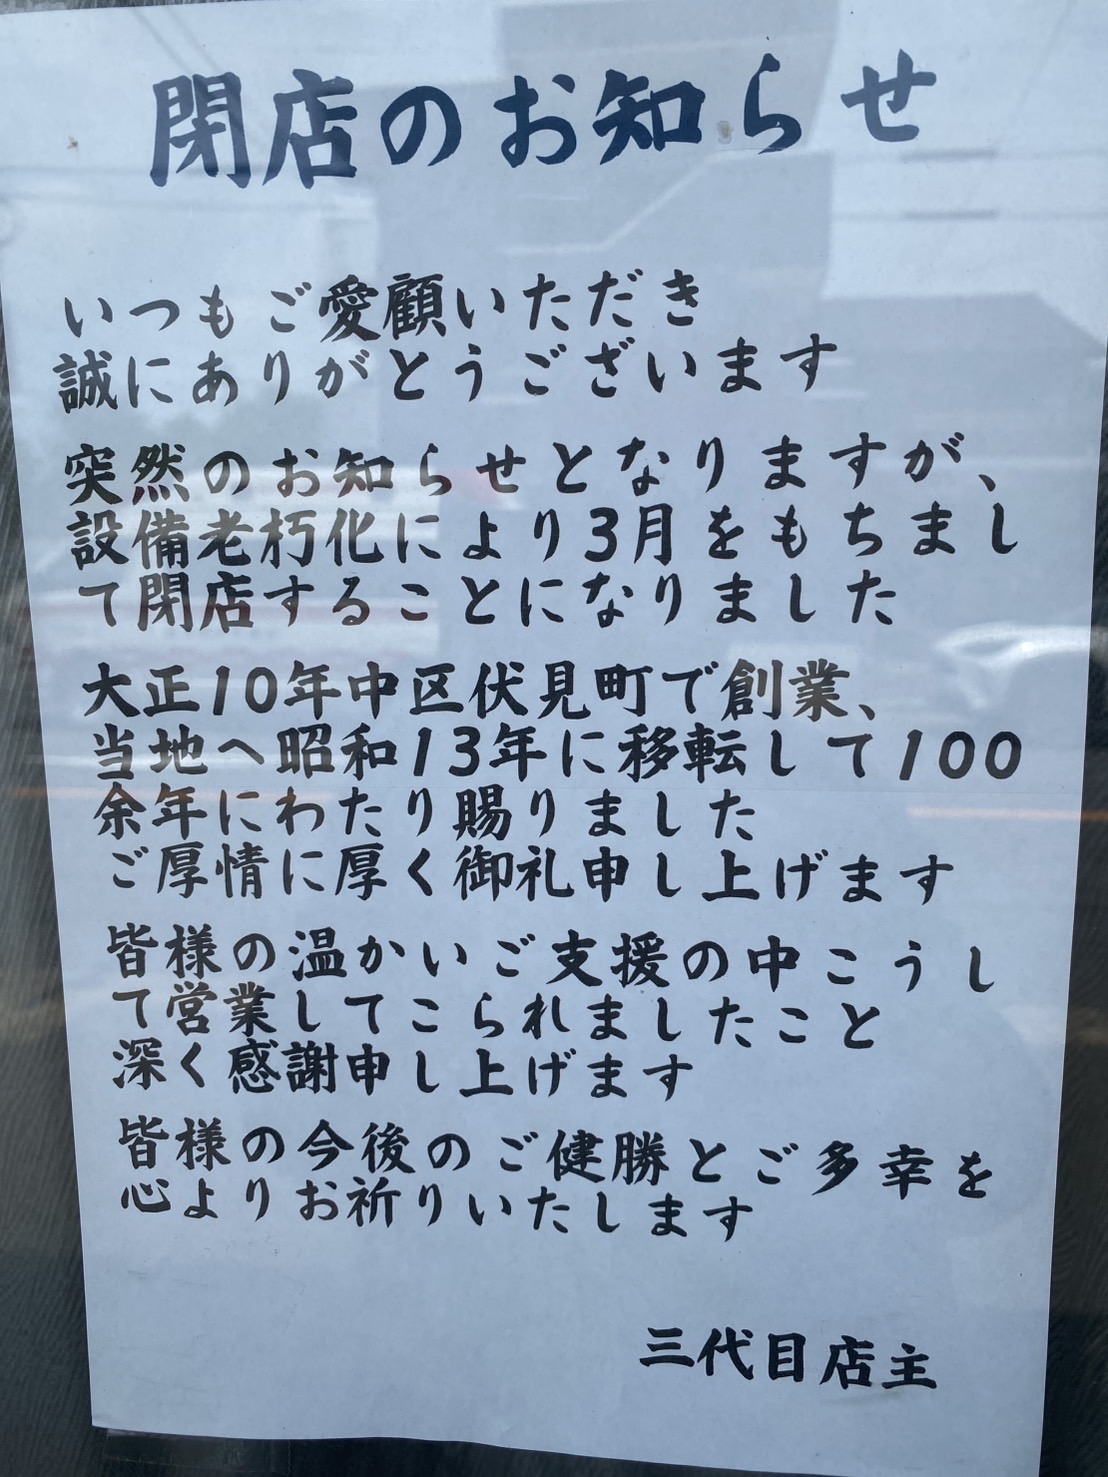 閉店のお知らせ
いつもご愛顧いただき
誠にありがとうございます
突然のお知らせとなりますが、
設備老朽化により3月をもちまし
て閉店することになりました
大正10年中区伏見町で創業、
当地へ昭和13年に移転して100
余年にわたり賜りました
ご厚情に厚く御礼申し上げます
皆様の温かいご支援の中こうし
て営業してこられましたこと
深く感謝申し上げます
皆様の今後のご健勝とご多幸を
心よりお祈りいたします
三代目店主